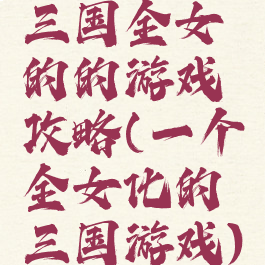 三国全女
的的游戏
攻略(一个
全女化的
三国游戏)